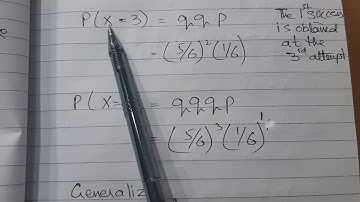 P(X=3) = qqp
= (5/6)² (1/6)
The 1st success
is obtained
at the
3rd attempt
P(X= = qqqp
= (5/6)³ (1/6)¹
Generaliz